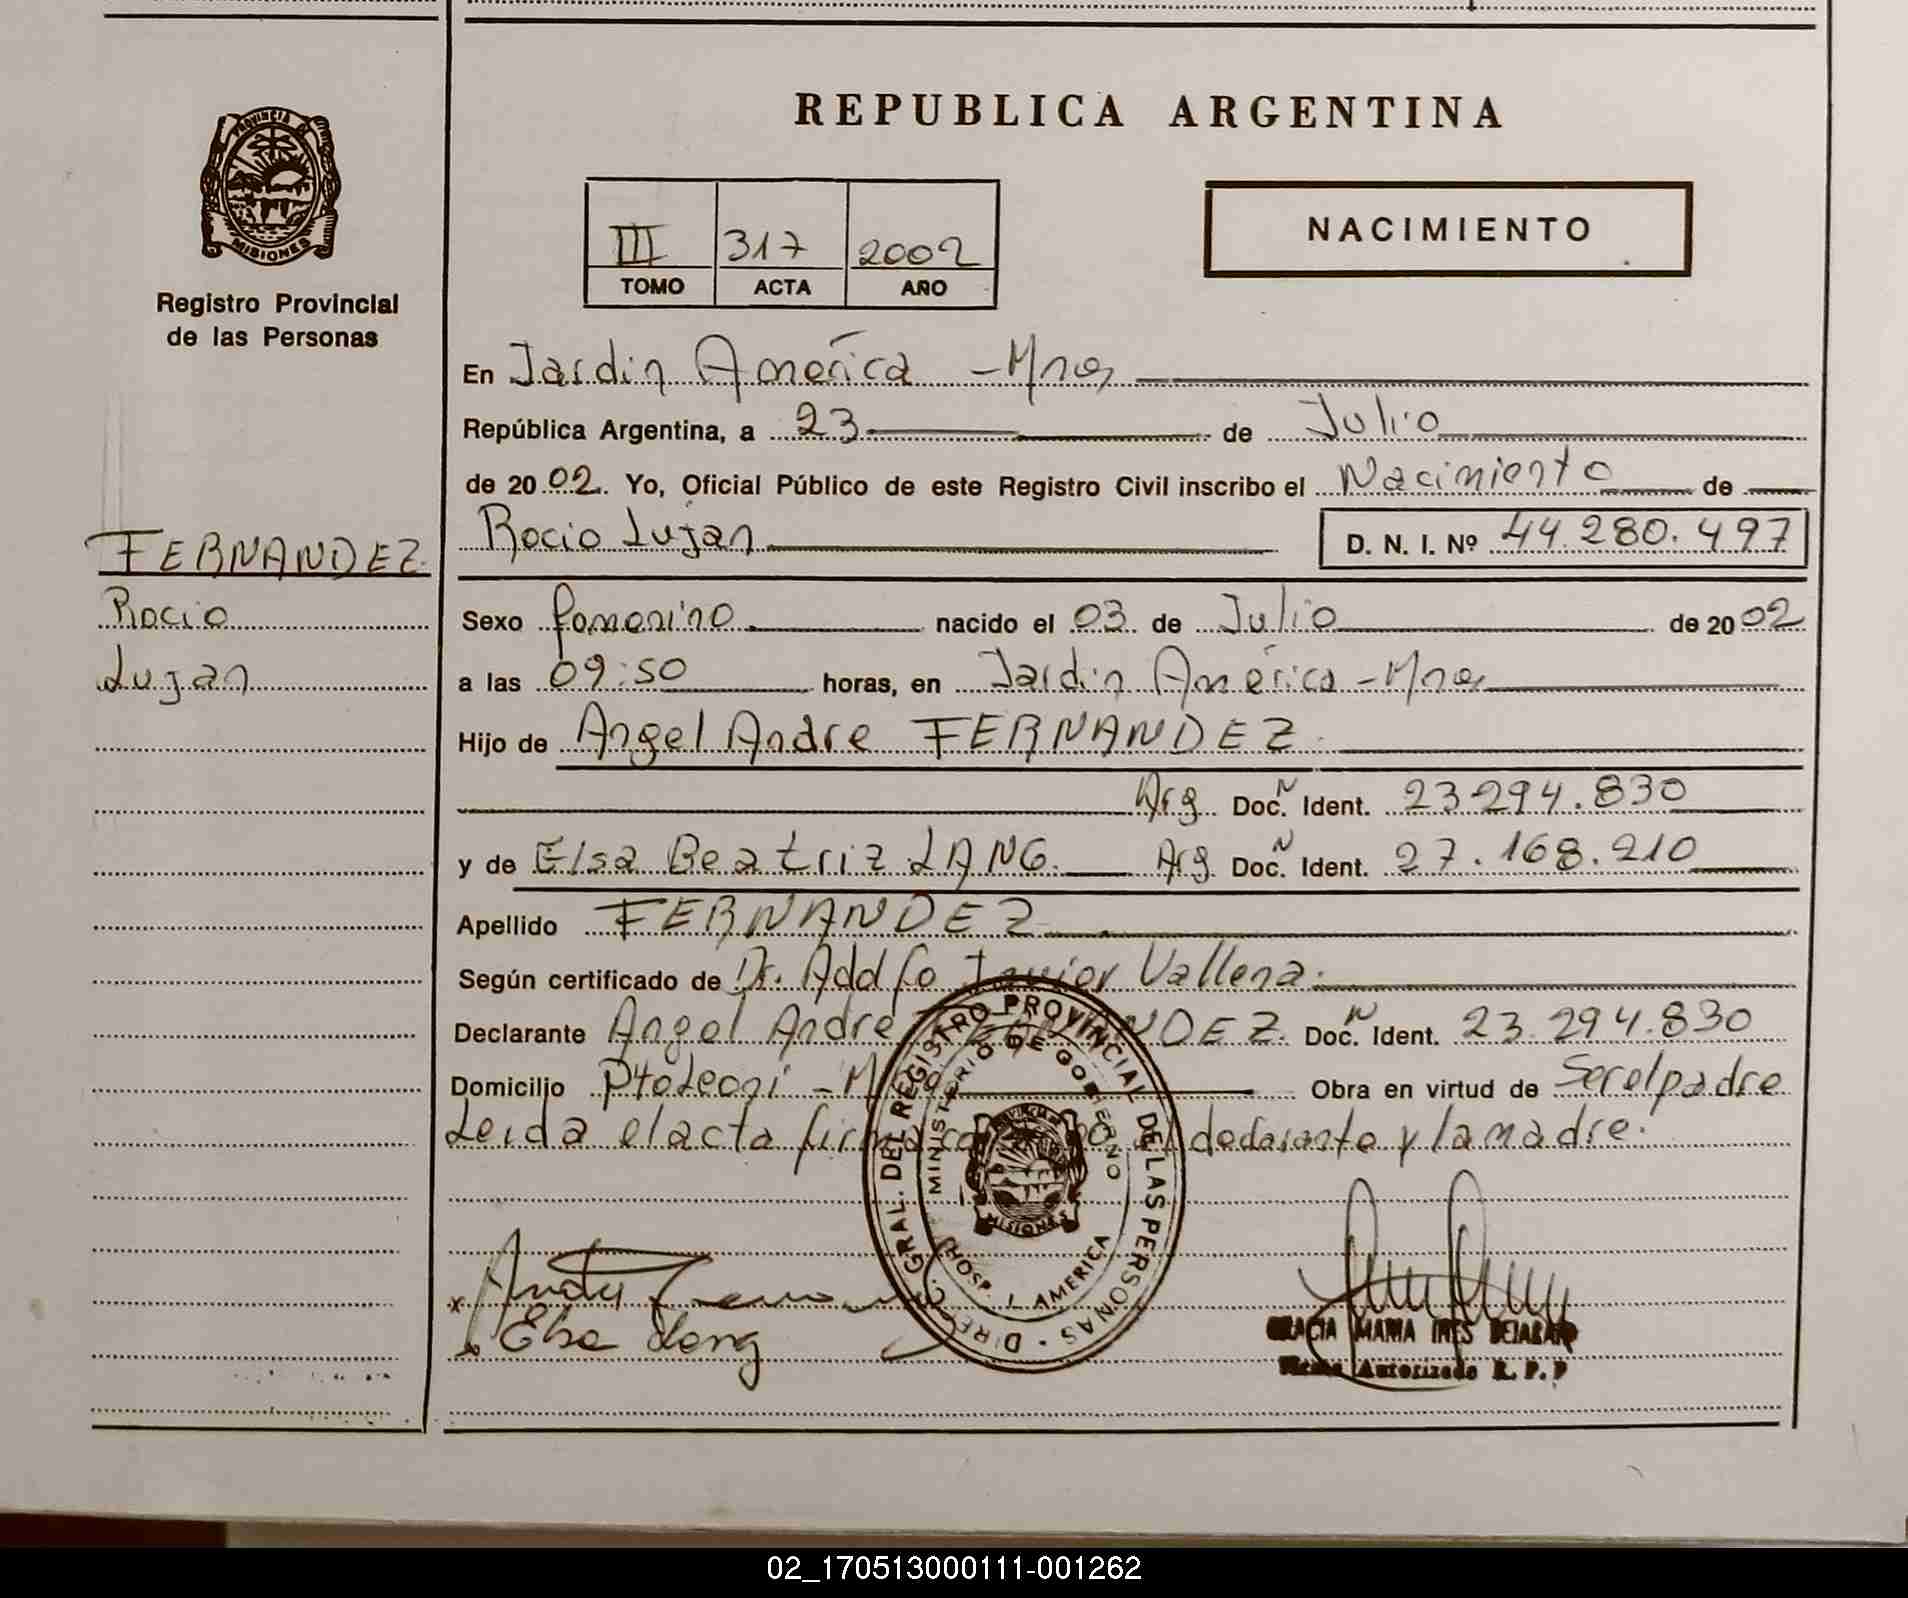 REPUBLICA ARGENTINA
PROVINCIA D
MISIONES
Registro Provincial
de las Personas
III 317 2002
TOMO ACTA AÑO
NACIMIENTO
En Jardin América - Mnes
República Argentina, a 23 de Julio
de 2002. Yo, Oficial Público de este Registro Civil inscribo el Nacimiento de
Rocio Lujan D. N. I. Nº 44.280.497
FERNANDEZ
Rocio
Lujan
Sexo femenino nacido el 03 de Julio de 2002
a las 09:50 horas, en Jardin América - Mnes
Hijo de Angel Andre FERNANDEZ
Arg. Doc. N Ident. 23.294.830
y de Elsa Beatriz LANG. Arg Doc. N Ident. 27.168.210
Apellido FERNANDEZ
Según certificado de Dr. Adolfo Javier Vallena.
Declarante Angel Andre FERNANDEZ. Doc. N Ident. 23.294.830
Domicilio Pto Leoni - Mnes Obra en virtud de Ser el padre
Leida el acta firma conmigo el declarante y la madre.
DIREC. GRAL. DEL REGISTRO PROVINCIAL DE LAS PERSONAS
MINISTERIO DE GOBIERNO
MISIONES
HOSP. J. AMERICA
x Andre Fernandez
x Elsa Lang
GRACIA MARIA INES
Autorizado R. P. P
02_170513000111-001262